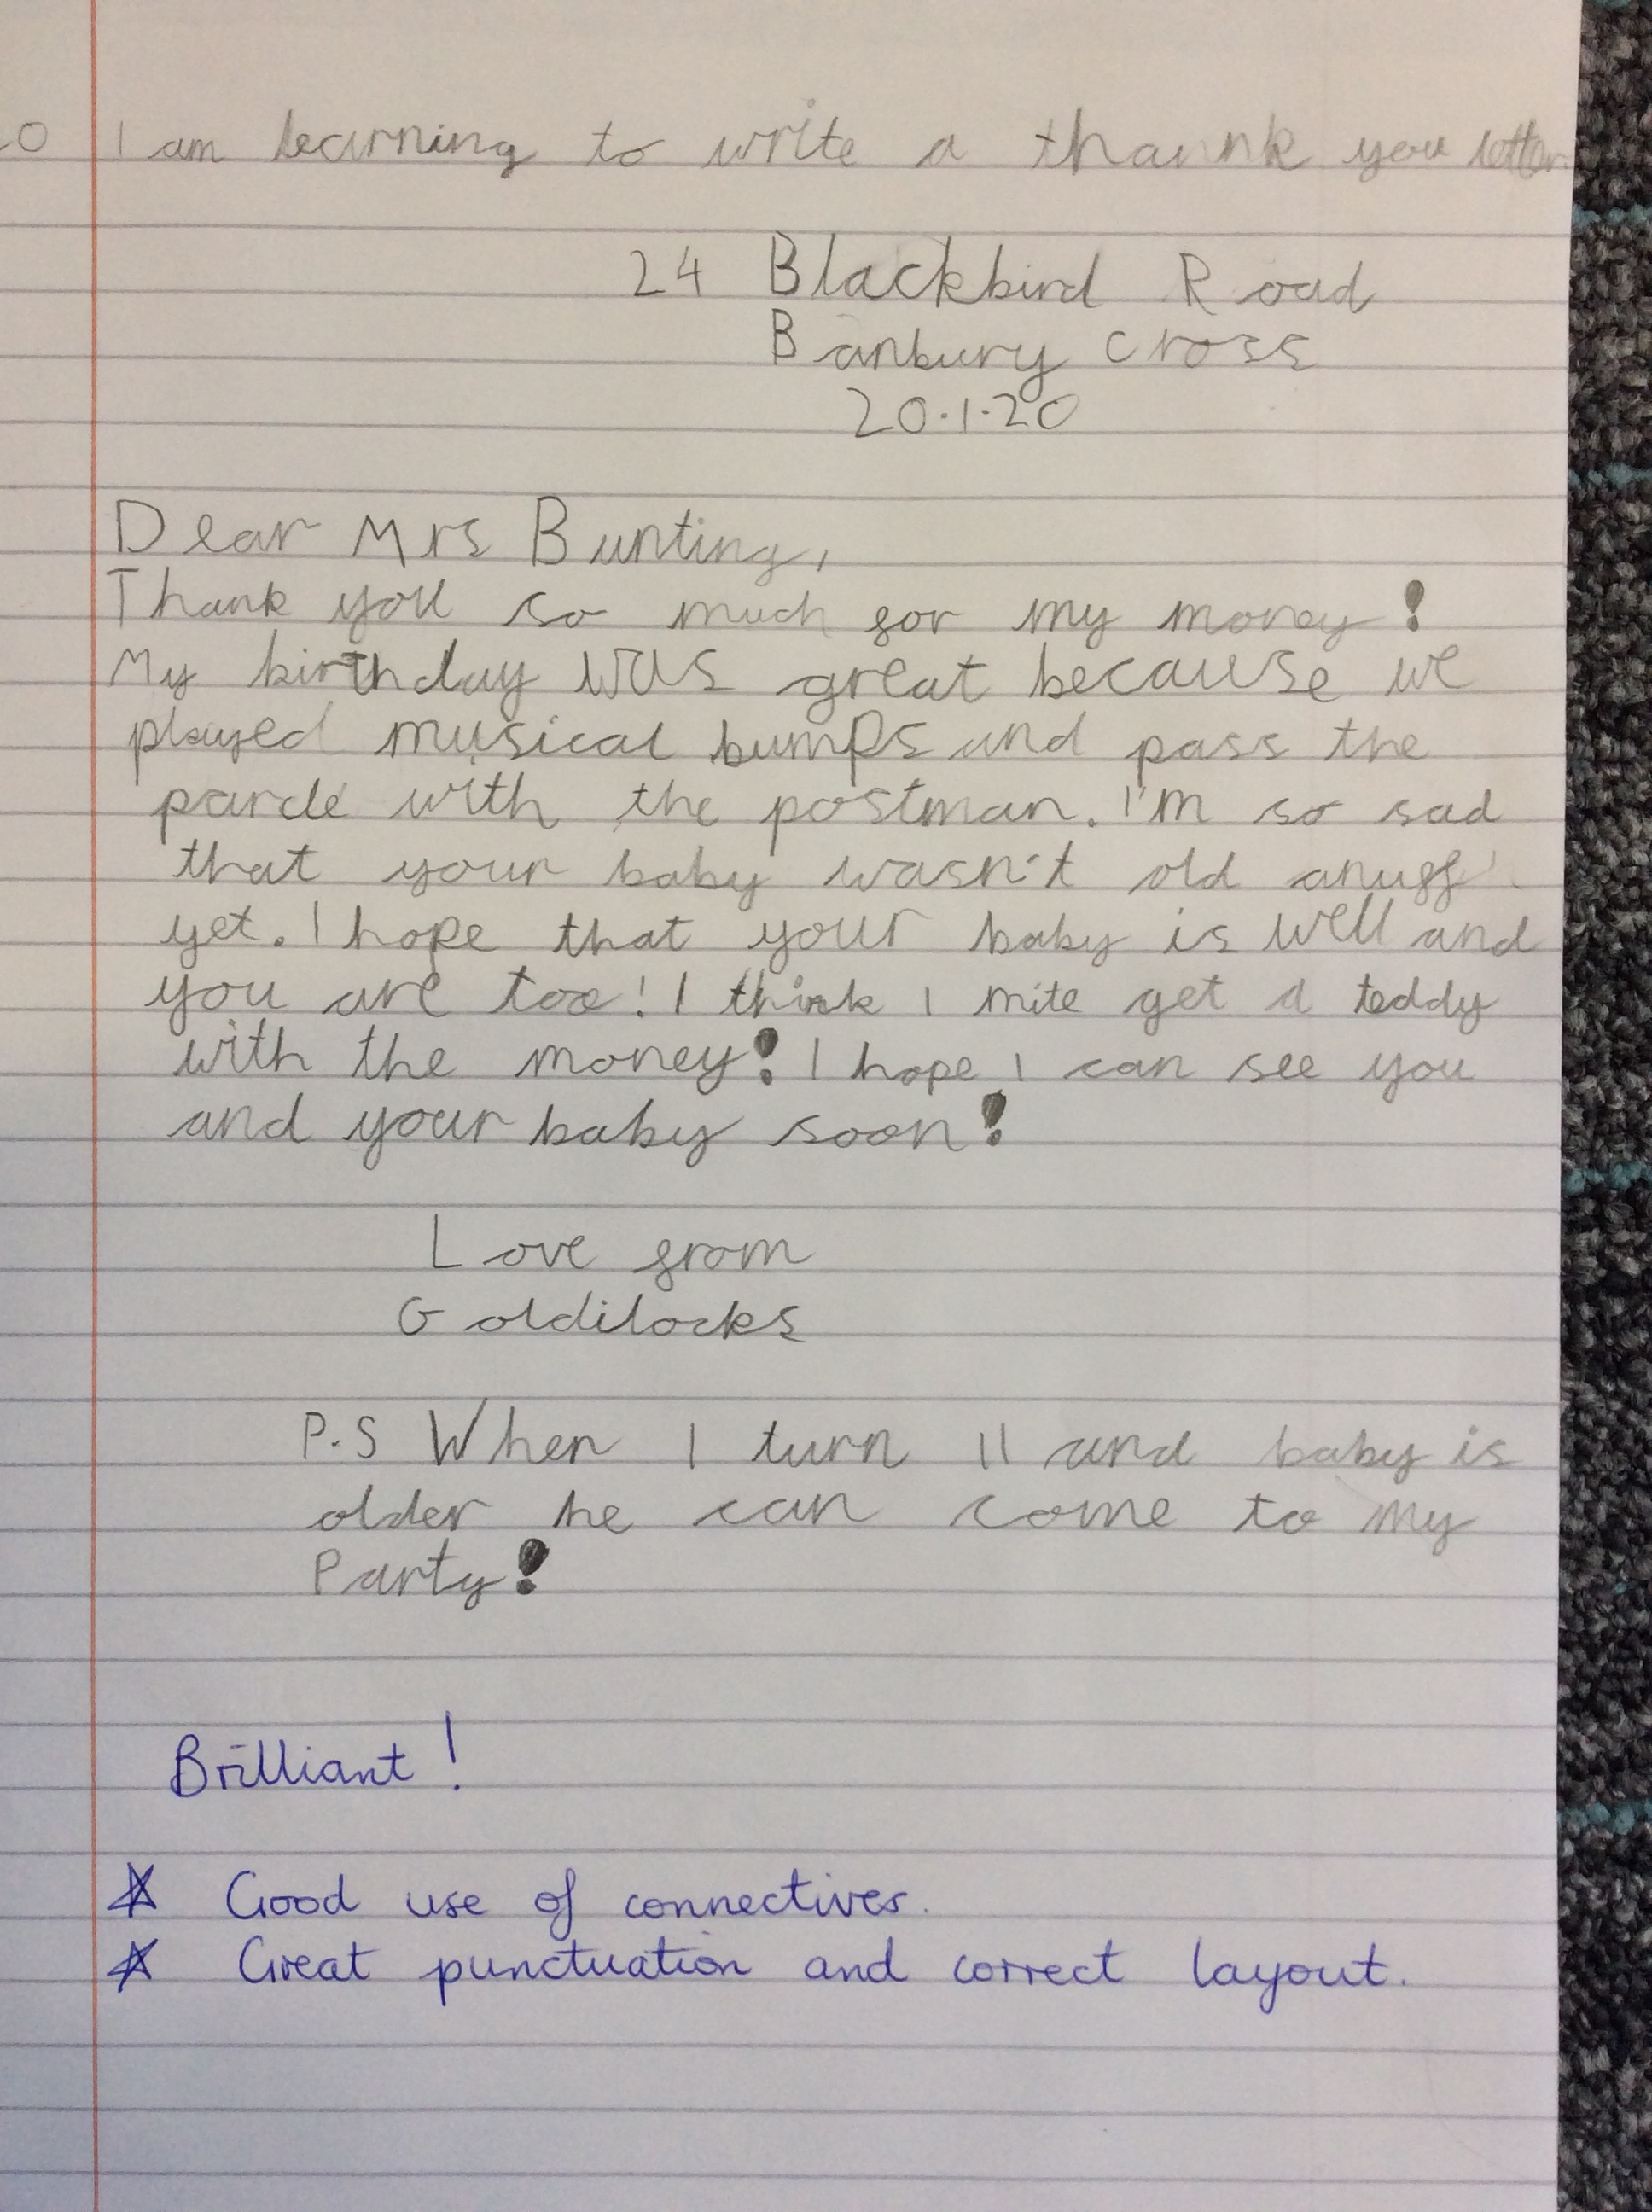 0 I am learning to write a thannk you letter.
24 Blackbird Road
Banbury Cross
20.1.20
Dear Mrs Bunting,
Thank you so much for my money!
My birthday was great because we
played musical bumps and pass the
parcle with the postman. I'm so sad
that your baby wasn't old anuff
yet. I hope that your baby is well and
you are too! I think I mite get a teddy
with the money! I hope I can see you
and your baby soon!
Love from
Goldilocks
P.S When I turn 11 and baby is
older he can come to my
Party!
Brilliant!
☆ Good use of connectives.
☆ Great punctuation and correct layout.